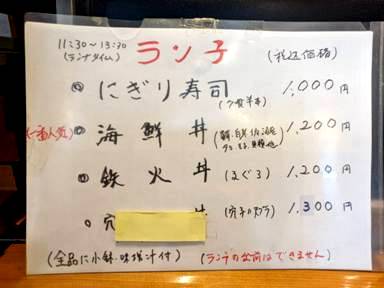 11:30〜13:30 ランチ (税込価格)
(ランチタイム)
◎ にぎり寿司 1,000円
(一番人気) ◎ 海鮮丼 1,200円
◎ 鉄火丼 (まぐろ) 1,200円
◎ 穴 丼 (穴子の天プラ) 1,300円
(全品に小鉢・味噌汁付) (ランチの出前はできません)